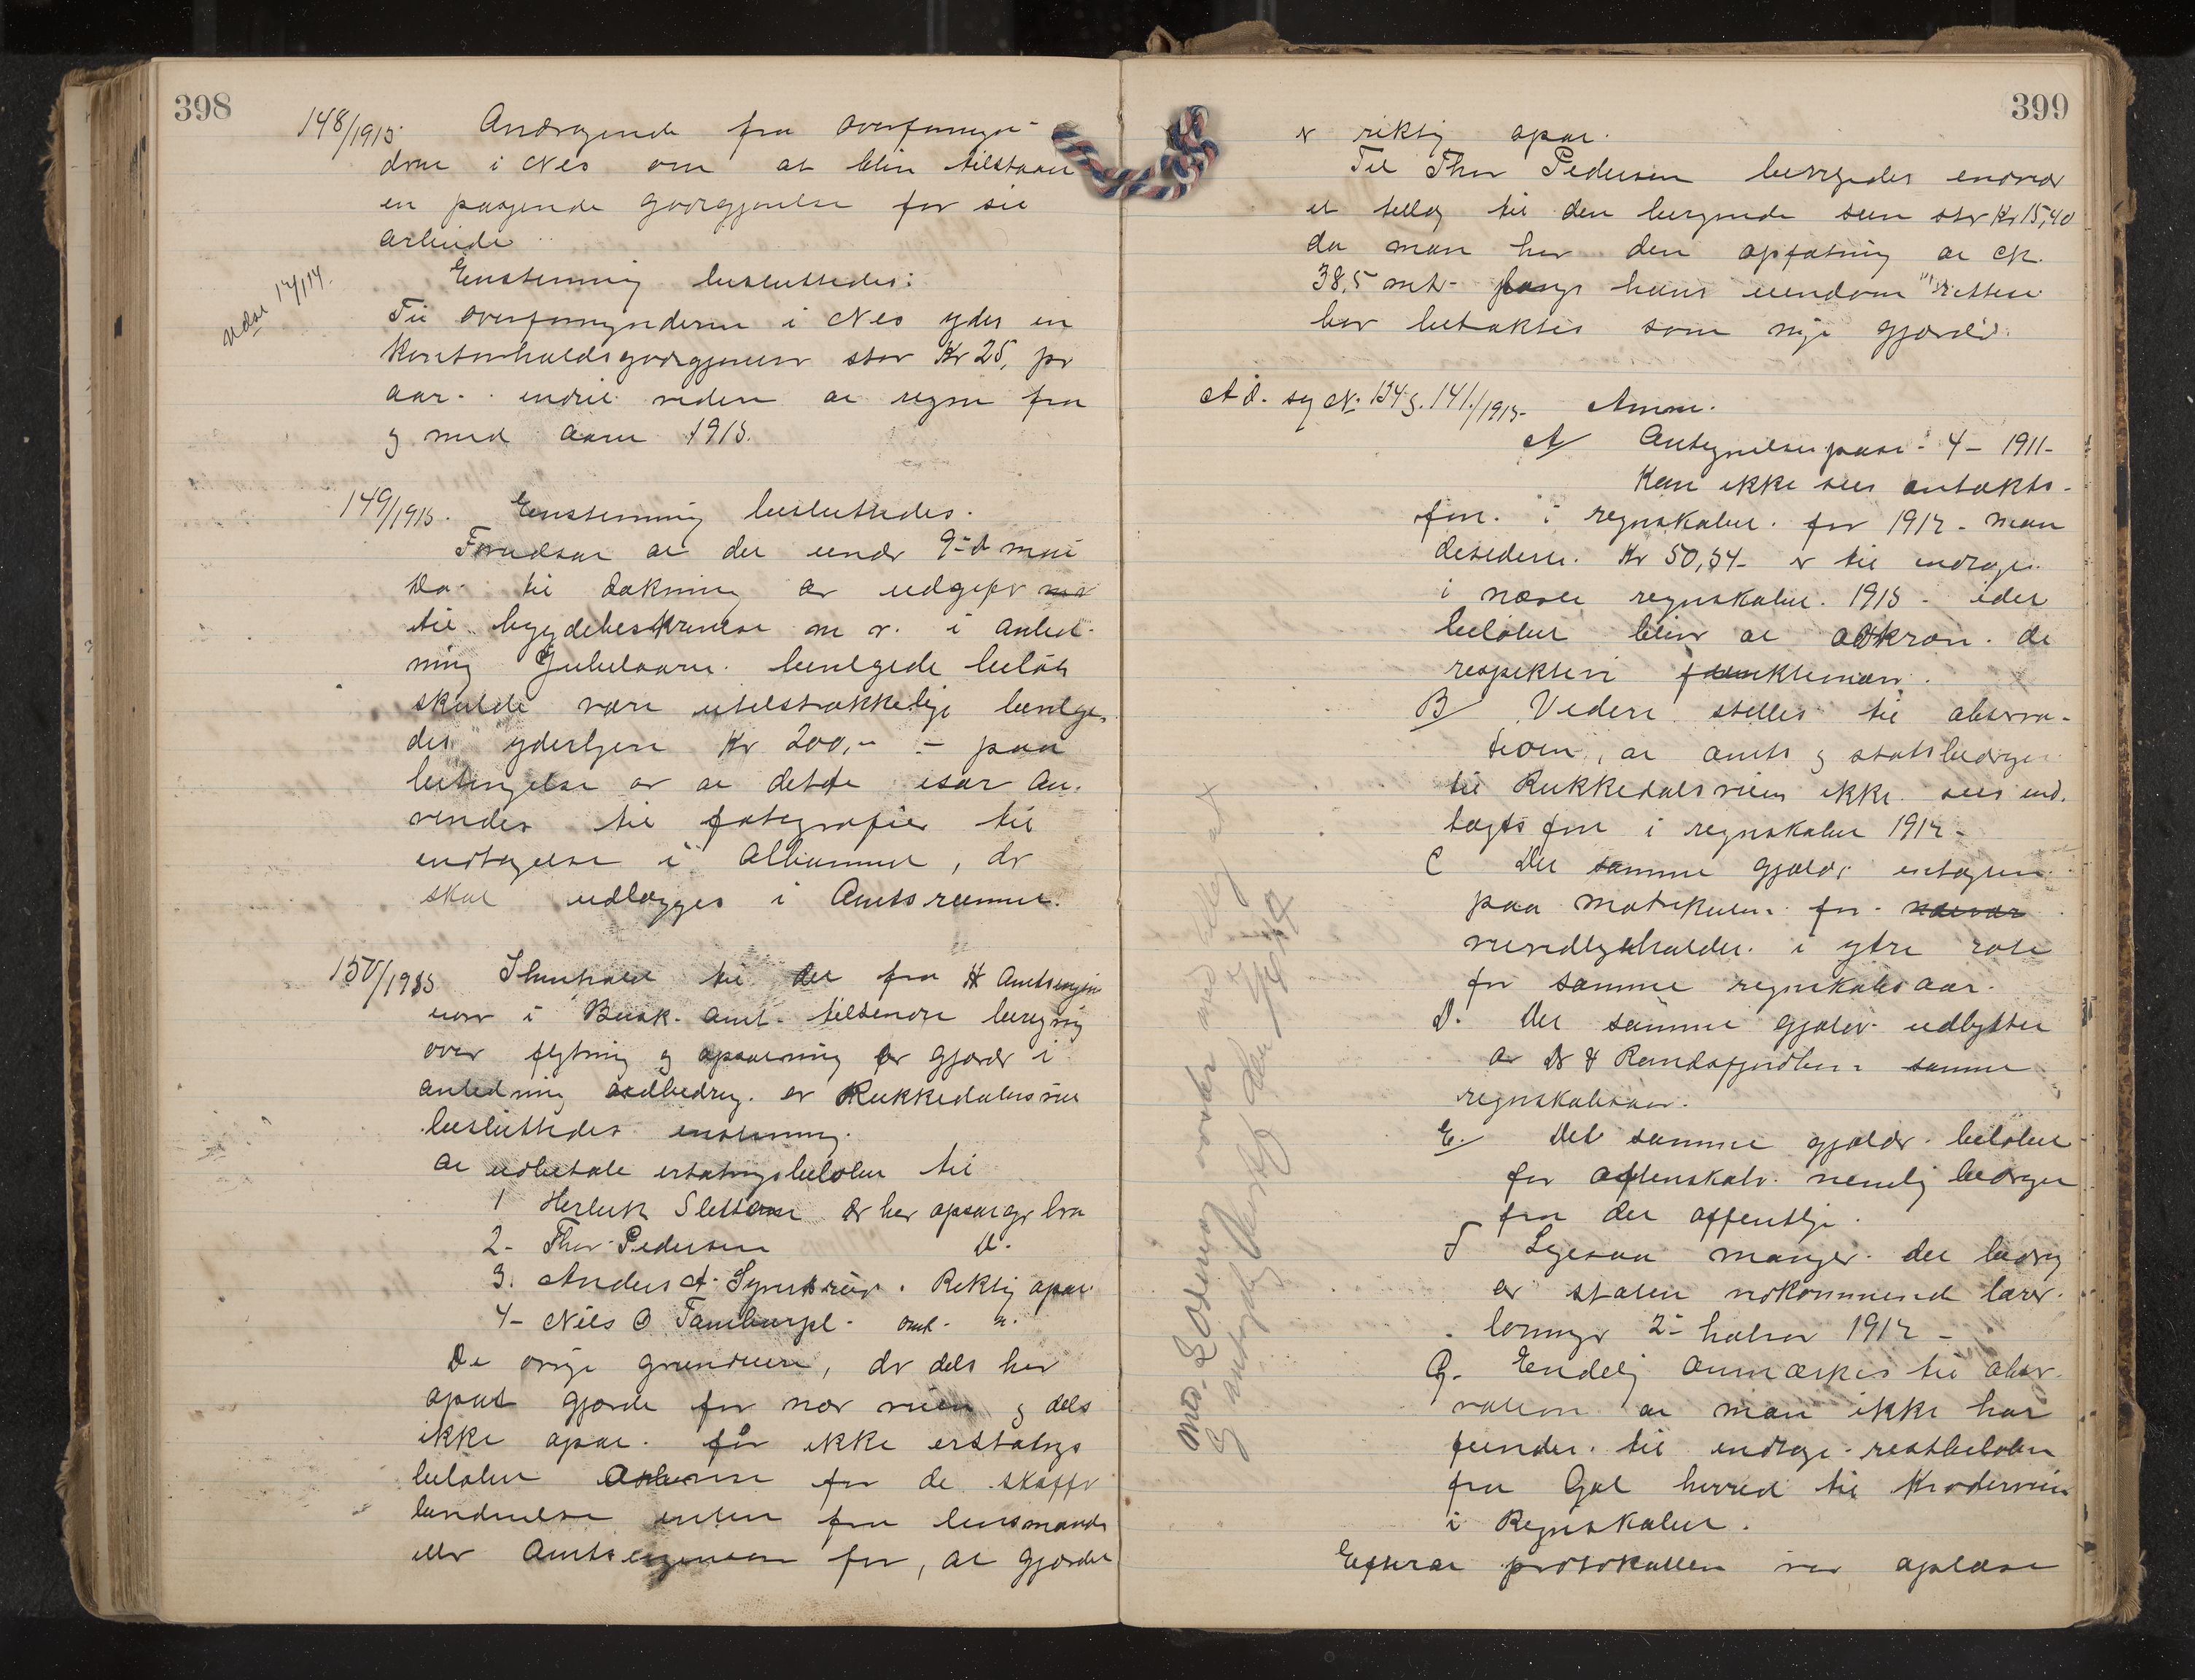 398
148/1915. Andragende fra overformyn-
derne i Nes om at blive tilstaaet
en passende godtgjørelse for sit
arbeide.
Enstemmig besluttedes:
Til overformynderne i Nes ydes en
kontorholdsgodtgjørelse stor Kr 25, pr
aar indtil videre at regne fra
og med aaret 1915.
149/1915. Enstemmig besluttedes.
Forudsat at det under 9-d mai
til dækning av udgifter
til bygdebeskrivelse m v. i anled-
ning Jubelaaret bevilgede beløb
skulde være utilstrækkelig bevilge-
des yderligere Kr 200,- - paa
betingelse av at dette især an-
vendes til fotografier til
indtagelse i Albummet, der
skal udlægges i Amtsrummet.
150/1915 I henhold til det fra Amtsingeni-
øren i Busk. amt. tilsendte beregning
over flytning og opsætning av gjærder i
anledning udbedring av Rukkedalsveien
besluttedes enstemmig.
at udbetale erstatningsbeløbet til
1 Herbrk Slettom er har opsat gr bra
2- Thor Pedersen D.
3. Anders A. Rektig opsat
4- Nils O omt. n.
De øvrige grundeiere, der dels har
opsat gjærde for nær veien og dels
ikke opsat får ikke erstatnings
beløbet for de skaffer
bevidnelse enten fra lensmand
eller Amtsingeniøren for, at gjærdet
399
er riktig opsat.
Til Thor Pedersen bevilgedes endvider
et tillæg til den beregnede sum stor Kr 15,40
da man har den opfatning at ck.
38,5 mtr. langs hans eiendom
bør betraktes som nyt gjærde.
Ad. sag No 134 g. 141/1915- Anm.
A/ Antegnelsespost - 4 - 1911-
Kan ikke sees indtækts-
ført i regnskabet for 1914 - man
Kr 50,54 - er til indtages
i næste regnskabet 1915 - idet
beløbet blir at avkræve de
respektive
B/ Videre stilles til observa-
tion, at amts og statsbidraget
til Rukkedalsveien ikke sees ind-
tægtsført i regnskabet 1914 -
C Det samme gjælder
paa matrikulen for
veivedligeholdet i ytre rode
for samme regnskabsaar.
D. Det samme gjælder udbyttet
av D & Randsfjordban. samme
regnskabsaar.
E/ Det samme gjælder beløbet
for aftenskole nemlig bidraget
fra det offentlige.
F Ligesaa mangler det bidrag
av staten vedkommende lærer-
lønninger 2- halvår 1914 -
G. Endelig anmærkes til obser-
vation at man ikke har
funder til indtage restbeløbet
fra Gol herred til Krødersveien
i Regnskabet.
Efterat protokollen var oplæst